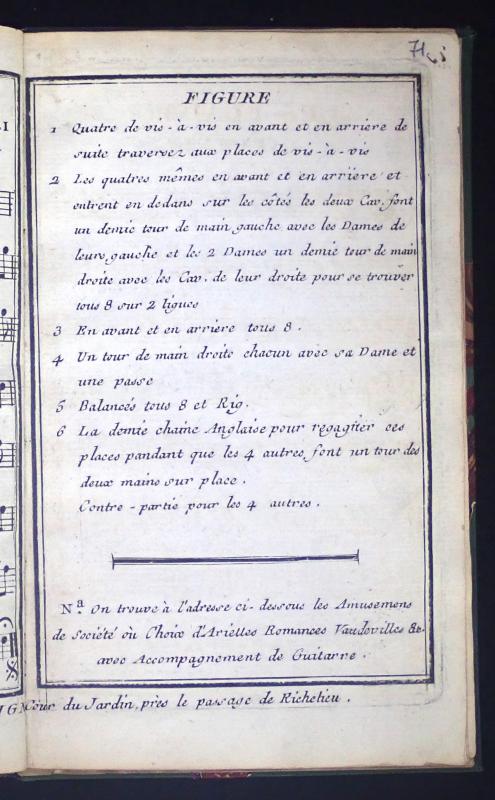 FIGURE
1 Quatre de vis-à-vis en avant et en arriere de
suite traversez aux places de vis-à-vis
2 Les quatres mêmes en avant et en arriére et
entrent en dedans sur les côtés les deux Cav. font
un demie tour de main gauche avec les Dames de
leurs gauche et les 2 Dames un demie tour de main
droite avec les Cav. de leur droite pour se trouver
tous 8 sur 2 lignes
3 En avant et en arriere tous 8.
4 Un tour de main droite chacun avec sa Dame et
une passe
5 Balancés tous 8 et Rig.
6 La demie chaine Anglaise pour regagner ces
places pandant que les 4 autres font un tour des
deux mains sur place.
Contre-partie pour les 4 autres.
Na. On trouve à l'adresse ci-dessous les Amusemens
de Société où Choix d'Arielles Romances Vaudevilles &c.
avec Accompagnement de Guitarre.
Cour du Jardin, près le passage de Richelieu.